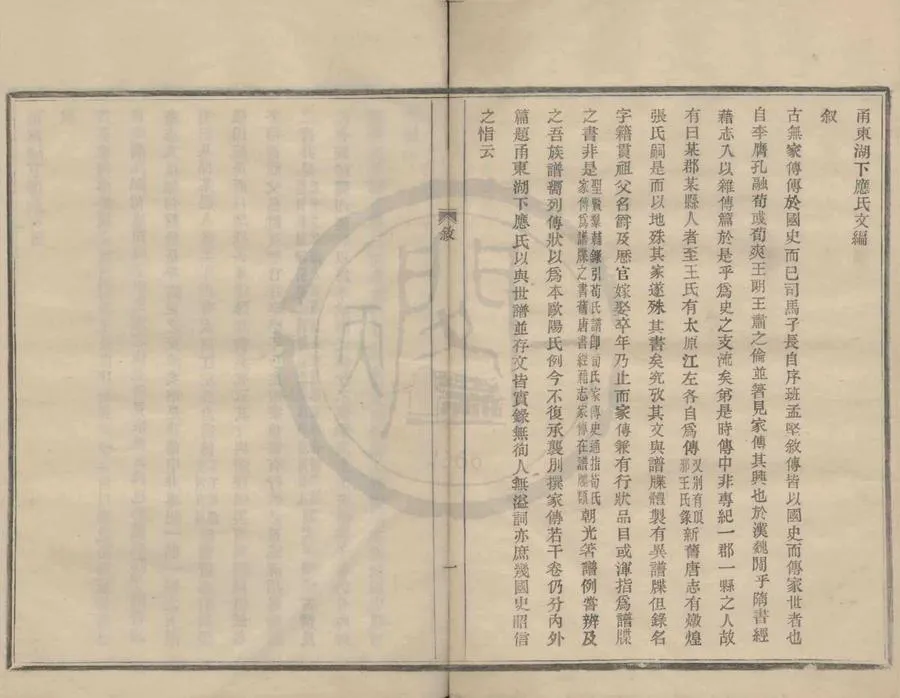 甬東湖下應氏文編
叙
古無家傳傳於國史而已司馬子長自序班孟堅敘傳皆以國史而傳家世者也
自李膺孔融荀彧荀爽王朗王肅之倫並著見家傳其興也於漢魏閒乎隋書經
藉志入以雜傳篇於是乎爲史之支流矣第是時傳中非專紀一郡一縣之人故
有曰某郡某縣人者至王氏有太原江左各自爲傳又別有琅邪王氏錄新舊唐志有燉煌
張氏嗣是而以地殊其家遂殊其書矣究攷其文與譜牒體製有異譜牒但錄名
字籍貫祖父名爵及歷官嫁娶卒年乃止而家傳兼有行狀品目或渾指爲譜牒
之書非是聖賢羣輔錄引荀氏譜卽荀氏家傳史通指荀氏家傳爲譜牒之書舊唐書經籍志家傳在譜牒類朝光著譜例嘗辨及
之吾族譜舊列傳狀以爲本歐陽氏例今不復承襲別撰家傳若干卷仍分內外
篇題甬東湖下應氏以與世譜並存文皆實錄無徇人無溢詞亦庶幾國史昭信
之恉云
敘
一